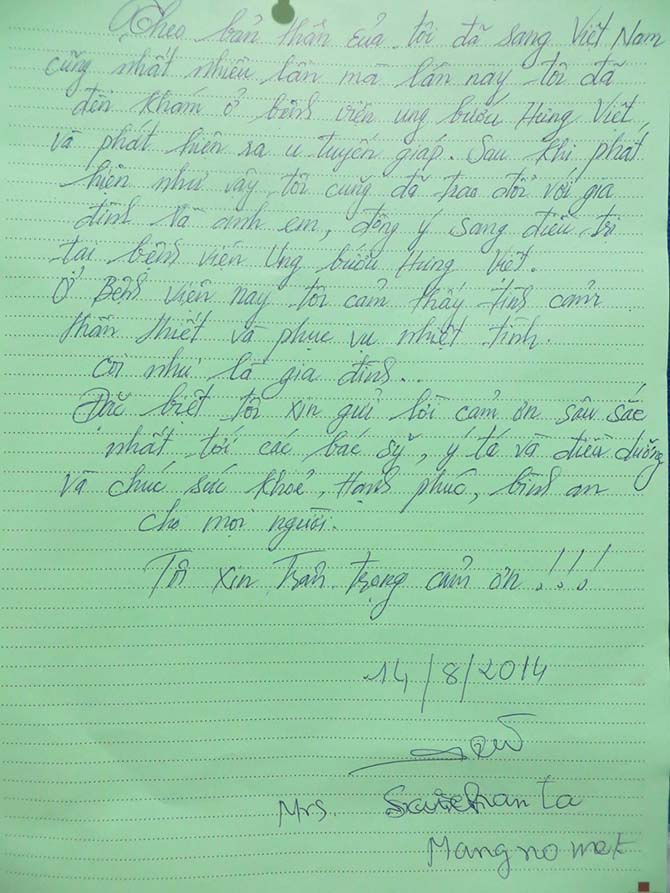 Theo bản thân của tôi đã sang Việt Nam
cũng nhất nhiều lần mà lần nay tôi đã
đến khám ở bệnh viện ung bướu Hưng Việt,
và phát hiện ra u tuyến giáp. Sau khi phát
hiện như vậy, tôi cũng đã trao đổi với gia
đình và anh em, đồng ý sang điều trị
tại bệnh viện Ung bướu Hưng Việt.
Ở Bệnh viện nay tôi cảm thấy tình cảm
thân thiết và phục vụ nhiệt tình.
coi như là gia đình...
Đặc biệt tôi xin gửi lời cảm ơn sâu sắc
nhất tới các bác sỹ, y tá và điều dưỡng
và chúc sức khoẻ, Hạnh phúc, bình an
cho mọi người.
Tôi xin Trân trọng cảm ơn!!!
14/8/2014
Mrs.
Mangnomek